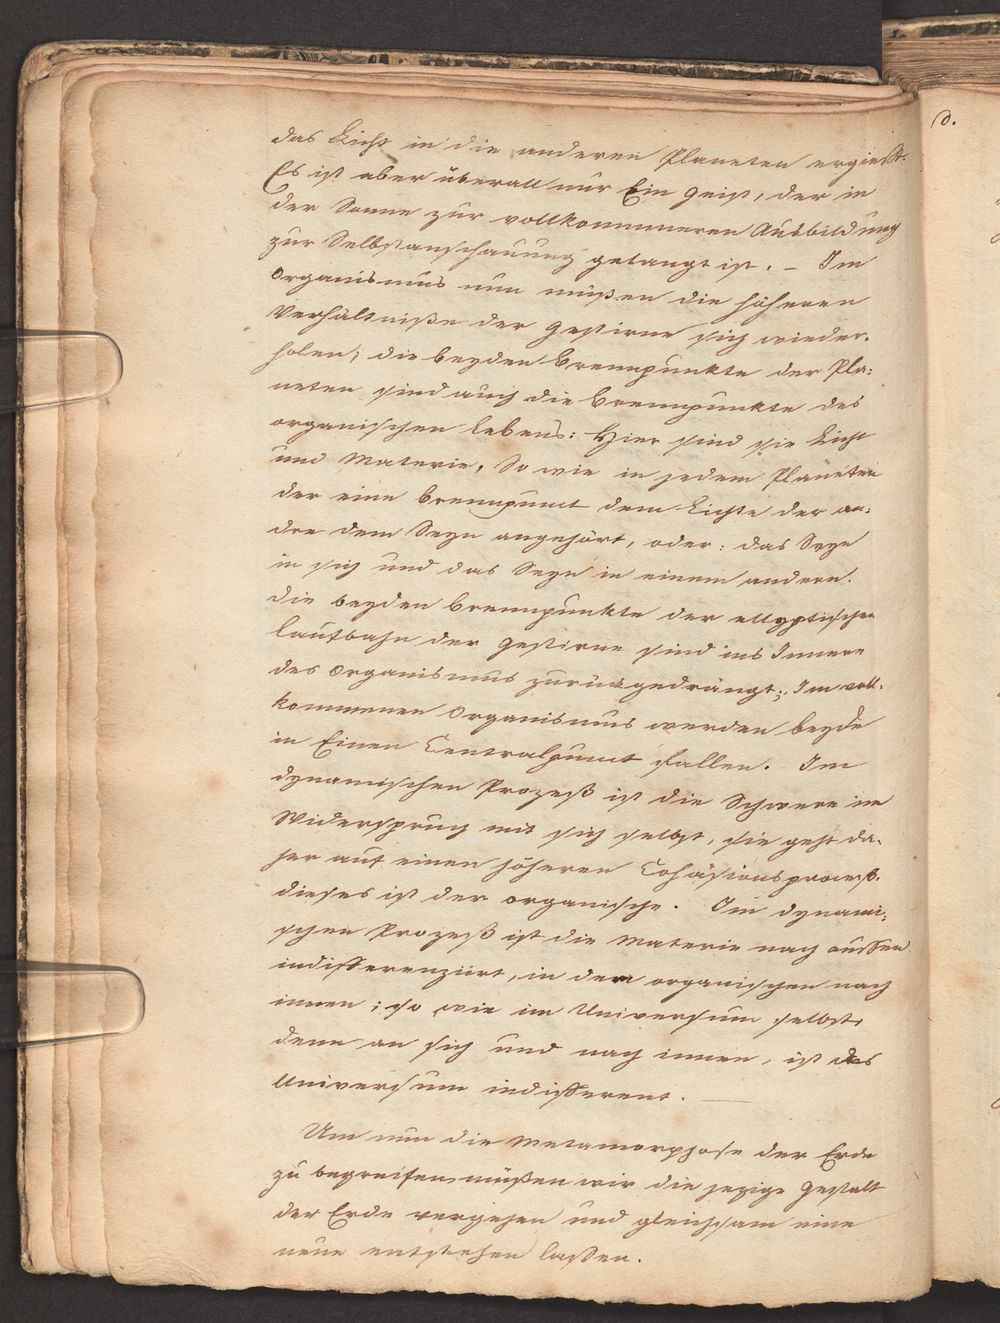 das Licht in die anderen Planeten ergießt.
Es ist aber überall nur Ein Geist, der in
der Sonne zur vollkommneren Ausbildung
zur Selbstanschauung gelangt ist. – Im
Organismus nun müßen die höheren
Verhältniße der Gestirne sich wieder-
holen; die beyden Brennpunkte der Pla:
neten sind auch die Brennpunkte des
organischen Lebens: Hier sind sie Licht
und Materie. So wie in jedem Planeten
der eine Brennpunct dem Lichte der an:
dre dem Seyn angehört, oder: das Seyn
in sich und das Seyn in einem andern.
Die beyden Brennpunkte der ellyptischen
Laufbahn der Gestirne sind ins Innere
des Organismus zurückgedrängt; Im voll-
kommenen Organismus werden beyde
in Einen Centralpunct fallen. Im
dynamischen Prozeß ist die Schwere im
Widerspruch mit sich selbst, sie geht da-
her auf einen höheren Cohäsionsproceß.
dieses ist der organische. Im dynami:
schen Prozeß ist die Materie nach aussen
indifferenziirt, in dem organischen nach
innen; so wie im Universum selbst,
denn an sich und nach innen, ist das
Universum indifferent.
Um nun die Metamorphose der Erde
zu begreifen müßen wir die jezige Gestalt
der Erde vergehen und gleichsam eine
neue entstehen laßen.